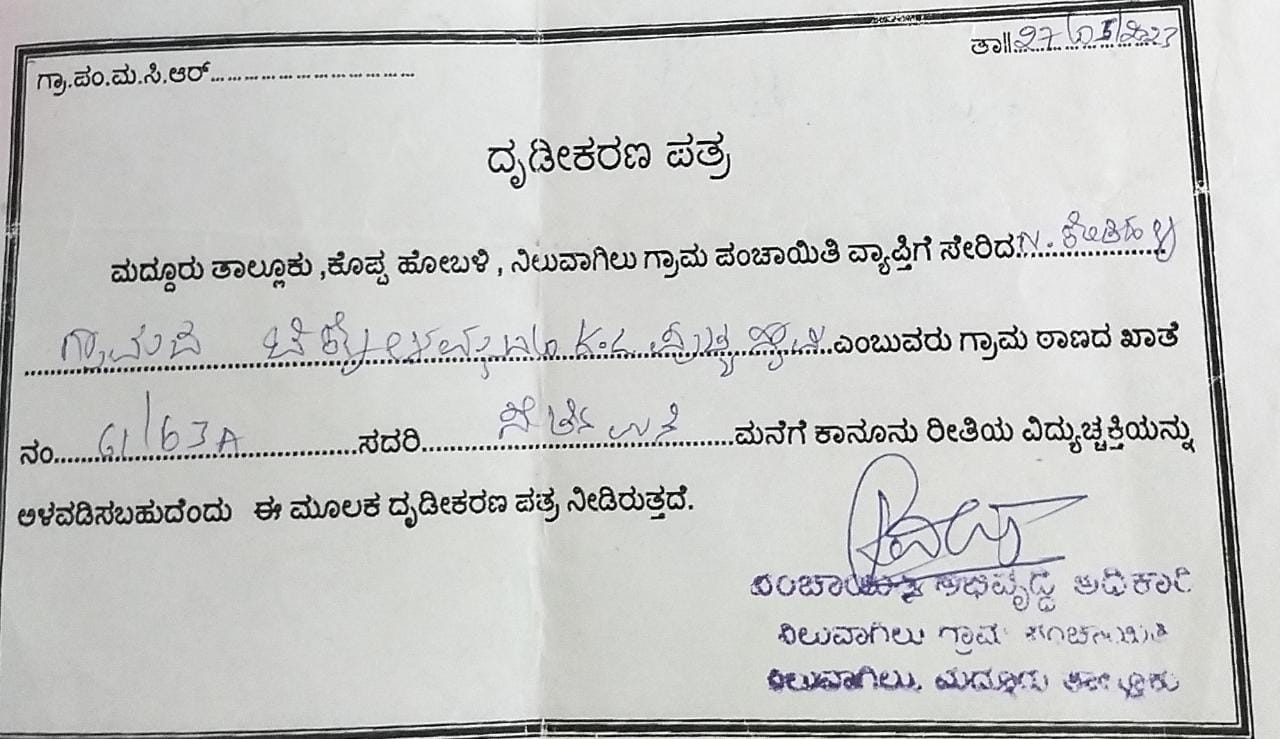 ಗ್ರಾ.ಪಂ.ಮ.ಸಿ.ಆರ್.............................. ತಾ||27/05/2023
ದೃಡೀಕರಣ ಪತ್ರ
ಮದ್ದೂರು ತಾಲ್ಲೂಕು ,ಕೊಪ್ಪ ಹೋಬಳಿ , ನಿಲುವಾಗಿಲು ಗ್ರಾಮ ಪಂಚಾಯಿತಿ ವ್ಯಾಪ್ತಿಗೆ ಸೇರಿದ N.
ಗ್ರಾಮದ ಎಂಬುವರು ಗ್ರಾಮ ಠಾಣದ ಖಾತೆ
ನಂ....61/63A..............ಸದರಿ..................ಮನೆಗೆ ಕಾನೂನು ರೀತಿಯ ವಿದ್ಯುಚ್ಚಕ್ತಿಯನ್ನು
ಅಳವಡಿಸಬಹುದೆಂದು ಈ ಮೂಲಕ ದೃಡೀಕರಣ ಪತ್ರ ನೀಡಿರುತ್ತದೆ.
ಪಂಚಾಯಿತಿ ಅಭಿವೃದ್ಧಿ ಅಧಿಕಾರಿ
ನಿಲುವಾಗಿಲು ಗ್ರಾಮ ಪಂಚಾಯಿತಿ
ನಿಲುವಾಗಿಲು. ಮದ್ದೂರು ತಾಲ್ಲೂಕು